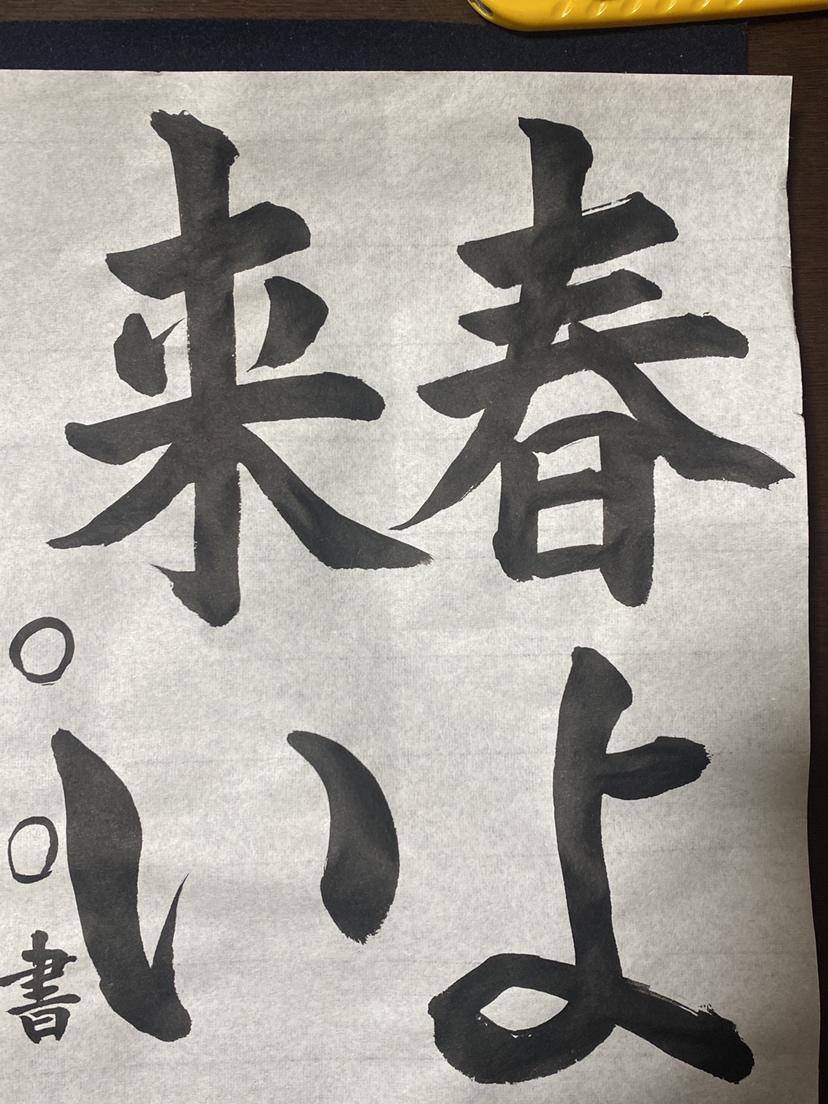 春よ
来い
○○書